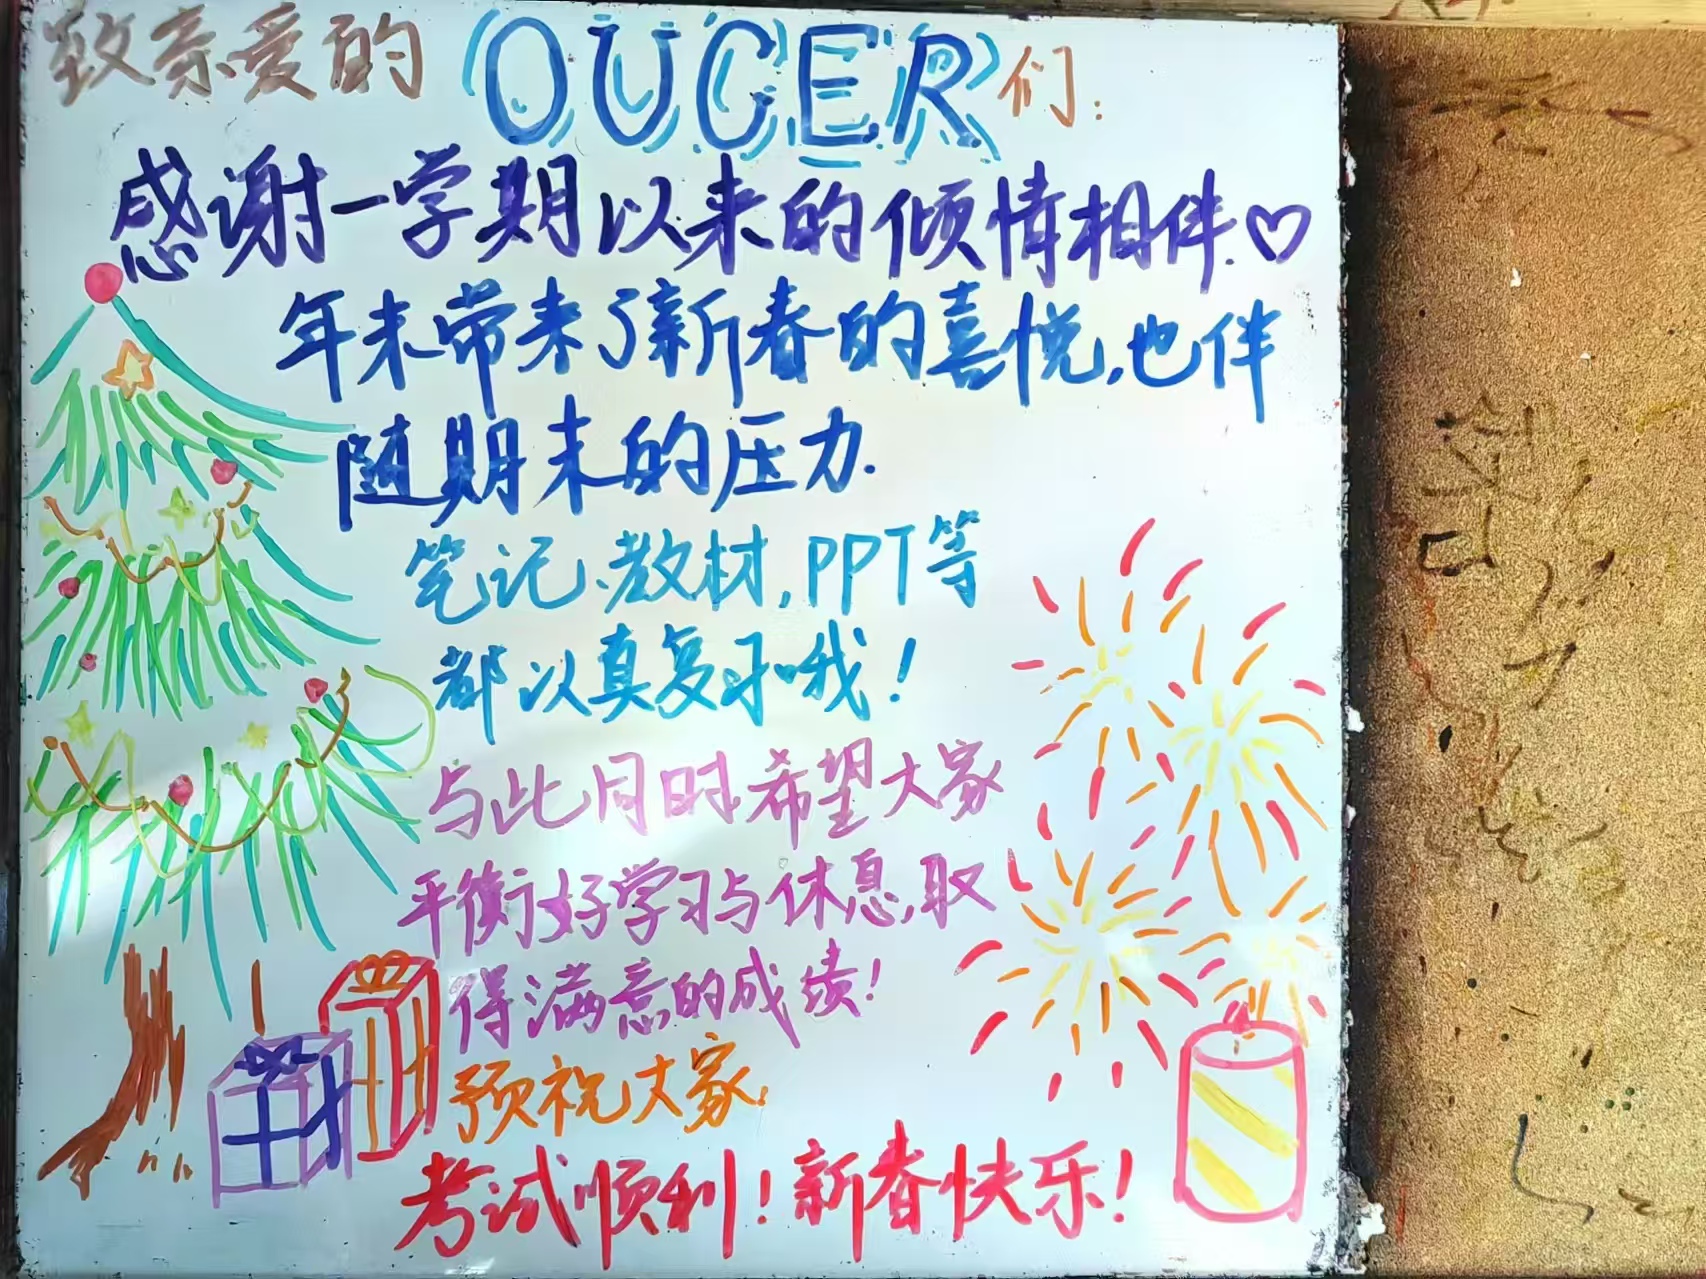 致亲爱的OUCER们:
感谢一学期以来的倾情相伴.♡
年末带来了新春的喜悦,也伴
随期末的压力.
笔记、教材,PPT等
都认真复习哦!
与此同时希望大家
平衡好学习与休息,取
得满意的成绩!
预祝大家:
考试顺利!新春快乐!